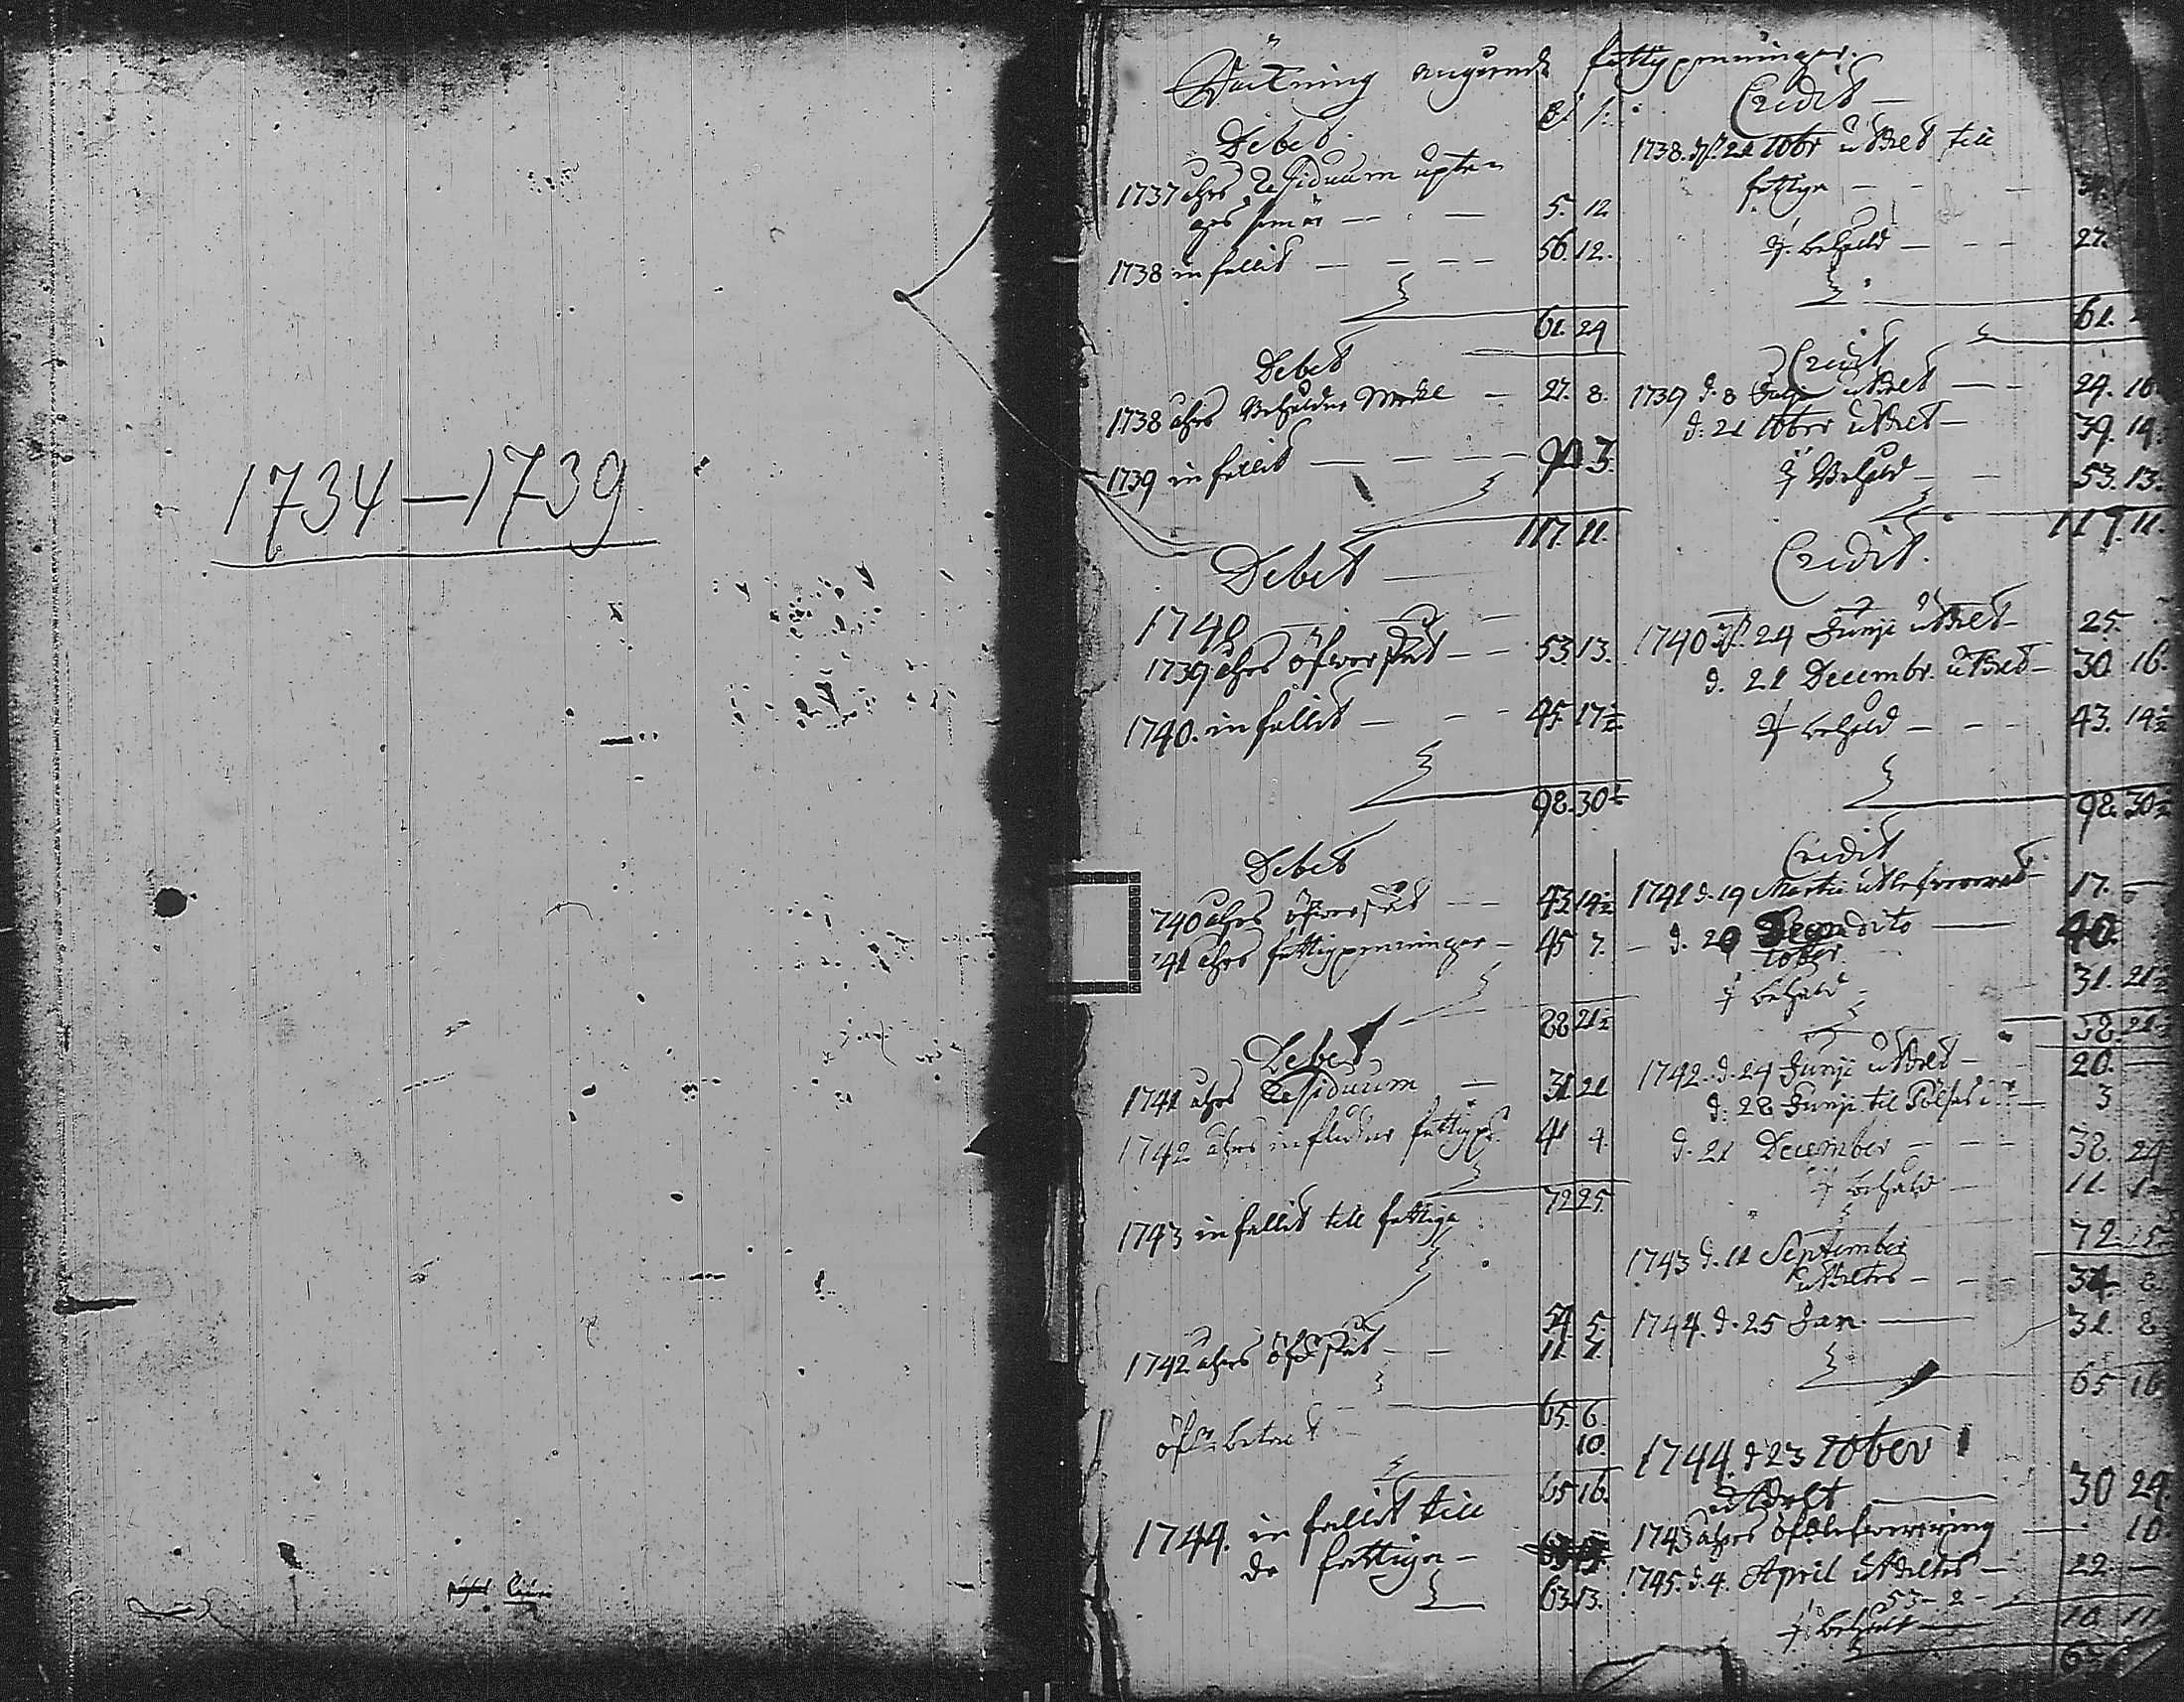 1734—1739
Räckning angående fattigpenningar.
Debet
1737 åhrs Residuum uptea
ges som är — — 5. 12
1738 infallit — — — — 56. 12.
61. 24
Debet
1738 åhrs Behåldne Medel — 27. 8.
1739 infallit — — — — 90 3.
117. 11.
Debet —
1740
1739 åhrs öfverskut — — 53. 13.
1740. infallit — — — 45. 17½
98. 30½
Debet
1740 åhrs öfverskut — — 43 14½
1741 åhrs fattigpenningar — 45 7.
88 21½
Debet
1741 åhrs Residuum — 31 21
1742 åhrs influtne fattigp: 41 4.
72 25.
1743 infallit till fattiga
54. 5.
1742 åhrs öfverskut — — 11. 1.
65. 6.
öfverbetalt 10.
65 16.
1744. infallit till
de fattiga —
63 13.
Credit —
1738. d. 21 10br utdelt till
fattiga — — —
behåld — — — 27.
61.
Credit
1739 d. 8 utdelt — — 24. 16
d. 21 10ber utdelt — 39. 14.
Behåld — — 53. 13.
117. 11.
Credit.
1740 d. 24 Junji utdelt — 25.
d. 21 Decembr. utdelt — 30. 16.
behåld — — — 43. 14½
98. 30½
Credit
1741 d. 19 Martii utlefwererat 17. —
d. 20 dito — 40.
10ber
behåld — 31. 21½
1742. d. 24 Junji utdelt — 20. —
d. 28 Junji til — 3
d. 21 December — — — 38. 24
behåld — 11. 1
72. 25.
1743 d. 11 September
utdeltes — — — 34. 8
1744. d. 25 Jan. — 31. 8
65 16
1744. d 23 10ber
utdelt — 30 24.
1743 åhrs öfverlefwerering — 10
1745. d. 4. April utdeltes — 22. —
53 - 2 -
behåld — 10. 11